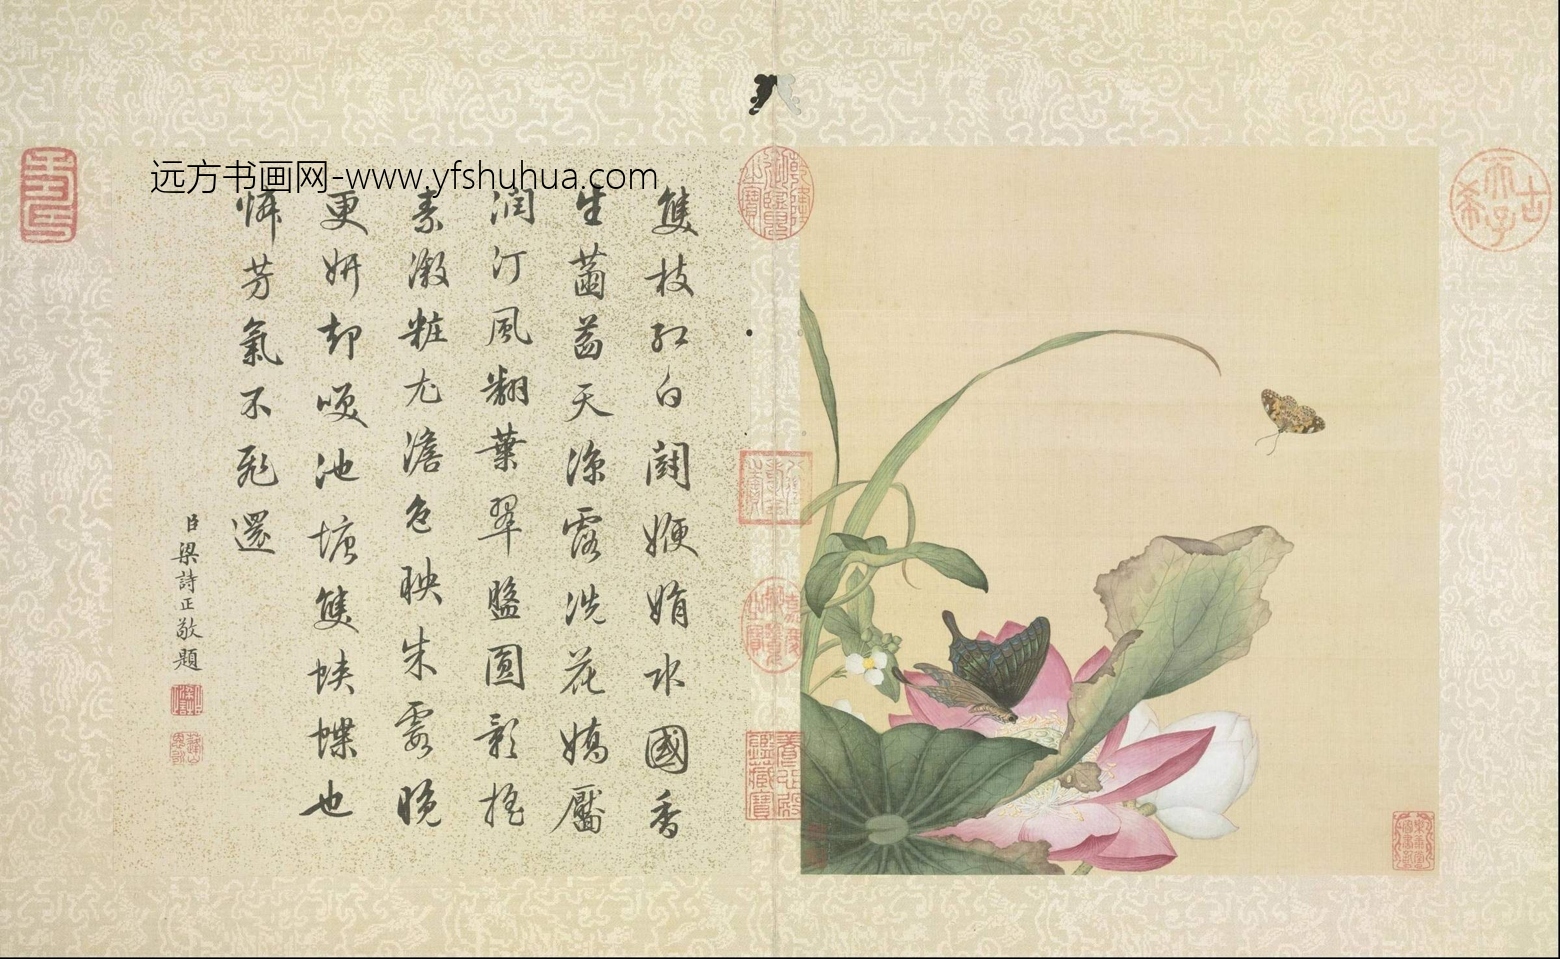 远方书画网-www.yfshuhua.com
雙枝紅白鬭㛹娟水國香
生菡萏天涼露洗花嬌靨
潤汀風翻葉翠盤圓影搖
素潋粧尤澹色映朱霞晚
更妍却喚池塘雙蛺蝶也
憐芳氣不飛還
臣梁詩正敬題
乾隆御覽之寶
古希天子